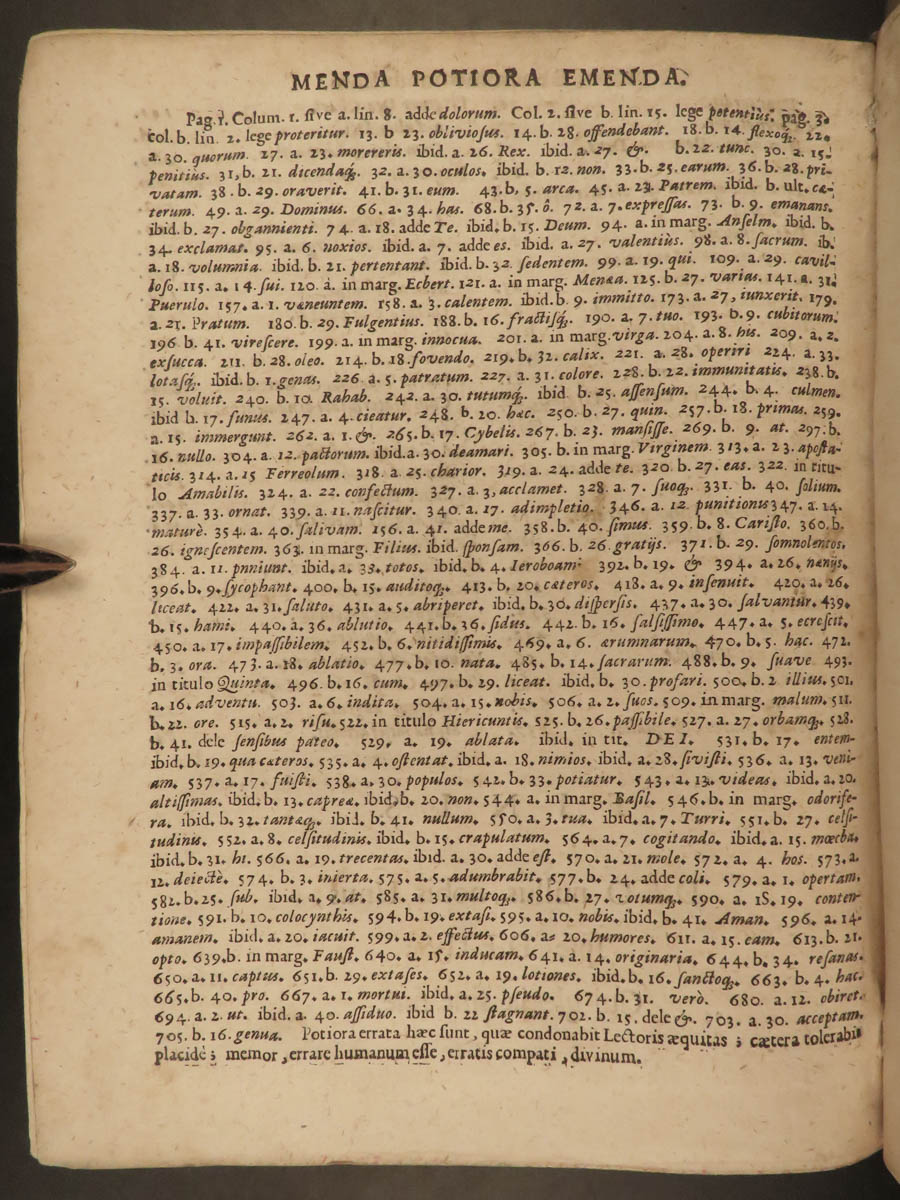 MENDA POTIORA EMENDA.
Pag. 1. Colum. 1. ſive a. lin. 8. adde dolorum. Col. 2. ſive b. lin. 15. lege potentius. pag. 3.
col. b. lin. 2. lege proteritur. 13. b 23. oblivioſus. 14. b. 28. offendebant. 18. b. 14. flexoq́. 22.
a. 30. quorum. 27. a. 23. morereris. ibid. a. 26. Rex. ibid. a. 27. &. b. 22. tunc. 30. a. 15.
penitius. 31. b. 21. dicendaq́. 32. a. 30. oculos. ibid. b. 12. non. 33. b. 25. earum. 36. b. 28. pri-
vatam. 38. b. 29. oraverit. 41. b. 31. eum. 43. b. 5. arca. 45. a. 23. Patrem. ibid. b. ult. cæ-
terum. 49. a. 29. Dominus. 66. a. 34. has. 68. b. 35. ô. 72. a. 7. expreſſas. 73. b. 9. emanans.
ibid. b. 27. obgannienti. 74. a. 18. adde Te. ibid. b. 15. Deum. 94. a. in marg. Anſelm. ibid. b.
34. exclamat. 95. a. 6. noxios. ibid. a. 7. adde es. ibid. a. 27. valentiùs. 98. a. 8. ſacrum. ib.
a. 18. volumnia. ibid. b. 21. pertentant. ibid. b. 32. ſedentem. 99. a. 19. qui. 109. a. 29. cavil-
loſo. 115. a. 14. ſui. 120. a. in marg. Ecbert. 121. a. in marg. Menæa. 125. b. 27. varias. 141. a. 31.
Puerulo. 157. a. 1. væneuntem. 158. a. 3. calentem. ibid. b. 9. immitto. 173. a. 27, iunxerit. 179.
a. 21. Pratum. 180. b. 29. Fulgentius. 188. b. 16. fractiſq́. 190. a. 7. tuo. 193. b. 9. cubitorum.
196 b. 41. vireſcere. 199. a. in marg. innocua. 201. a. in marg. virga. 204. a. 8. his. 209. a. 2.
exſucca. 211. b. 28. oleo. 214. b. 18. fovendo. 219. b. 32. calix. 221. a. 28. operiri 224. a. 33.
lotaſq́. ibid. b. 1. genas. 226 a. 5. patratum. 227. a. 31. colore. 228. b. 22. immunitatis. 238. b.
15. voluit. 240. b. 10. Rahab. 242. a. 30. tutumq́. ibid b. 25. aſſenſum. 244. b. 4. culmen.
ibid b. 17. funus. 247. a. 4. cieatur. 248. b. 20. hæc. 250. b. 27. quin. 257. b. 18. primas. 259.
a. 15. immergunt. 262. a. 1. &. 265. b. 17. Cybelis. 267. b. 23. manſiſſe. 269. b. 9. at. 297. b.
16. nullo. 304. a. 12. pactorum. ibid. a. 30. deamari. 305. b. in marg. Virginem. 313. a. 23. apoſta-
ticis. 314. a. 15 Ferreolum. 318. a. 25. charior. 319. a. 24. adde te. 320 b. 27. eas. 322. in titu-
lo Amabilis. 324. a. 22. confectum. 327. a. 3, acclamet. 328. a. 7. ſuoq́. 331. b. 40. ſolium.
337. a. 33. ornat. 339. a. 11. naſcitur. 340. a. 17. adimpletio. 346. a. 12. punitionis 347. a. 14.
maturè. 354. a. 40. ſalivam. 156. a. 41. adde me. 358. b. 40. ſimus. 359. b. 8. Cariſto. 360. b.
26. igneſcentem. 363. in marg. Filius. ibid. ſponſam. 366. b. 26. gratijs. 371. b. 29. ſomnolentos.
384. a. 11. pnniunt. ibid. a. 33. totos. ibid. b. 4. Ieroboam. 392. b. 19. & 394. a. 26. nænijs.
396. b. 9. ſycophant. 400. b. 15. auditoq́. 413. b. 20. cæteros. 418. a. 9. inſenuit. 420. a. 26.
liceat. 422. a. 31. ſaluto. 431. a. 5. abriperet. ibid. b. 30. diſperſis. 437. a. 30. ſalvantur. 439.
b. 15. hami. 440. a. 36. ablutio. 441. b. 36. ſidus. 442. b. 16. ſalſiſſimo. 447. a. 5. ecreſcit.
450. a. 17. impaſſibilem. 452. b. 6. nitidiſſimis. 469. a. 6. ærumnarum. 470. b. 5. hac. 472.
b. 3. ora. 473. a. 18. ablatio. 477. b. 10. nata. 485. b. 14. ſacrarum. 488. b. 9. ſuave 493.
in titulo Quinta. 496. b. 16. cum. 497. b. 29. liceat. ibid. b. 30. profari. 500. b. 2 illius. 501.
a. 16. adventu. 503. a. 6. indita. 504. a. 15. nobis. 506. a. 2. ſuos. 509. in marg. malum. 511.
b. 22. ore. 515. a. 2. riſu. 522. in titulo Hiericuntis. 525. b. 26. paſſibile. 527. a. 27. orbamq́. 528.
b. 41. dele ſenſibus pateo. 529. a. 19. ablata. ibid. in tit. DEI. 531. b. 17. entem.
ibid. b. 19. qua cæteros. 535. a. 4. oſtentat. ibid. a. 18. nimios. ibid. a. 28. ſiviſti. 536. a. 13. veni-
am. 537. a. 17. fuiſti. 538. a. 30. populos. 542. b. 33. potiatur. 543. a. 13. videas. ibid. a. 20.
altiſſimas. ibid. b. 13. capreæ. ibid. b. 20. non. 544. a. in marg. Baſil. 546. b. in marg. odorife-
ra. ibid. b. 32. tantæq́. ibid. b. 41. nullum. 550. a. 3. tua. ibid. a. 7. Turri. 551. b. 27. celſi-
tudinis. 552. a. 8. celſitudinis. ibid. b. 15. crapulatum. 564. a. 7. cogitando. ibid. a. 15. mœcha.
ibid. b. 31. hi. 566. a. 19. trecentas. ibid. a. 30. adde eſt. 570. a. 21. mole. 572. a. 4. hos. 573. a.
12. deiectè. 574. b. 3. inierta. 575. a. 5. adumbrabit. 577. b. 24. adde coli. 579. a. 1. opertam.
582. b. 25. ſub. ibid. a. 9. at. 585. a. 31. multoq́. 586. b. 27. totumq́. 590. a. 18. 19. conten-
tione. 591. b. 10. colocynthis. 594. b. 19. extaſi. 595. a. 10. nobis. ibid. b. 41. Aman. 596. a. 14.
amanem. ibid. a. 20. iacuit. 599. a. 2. effectus. 606. a. 20. humores. 611. a. 15. eam. 613. b. 21.
opto. 639. b. in marg. Fauſt. 640. a. 15. inducam. 641. a. 14. originaria. 644. b. 34. reſanas.
650. a. 11. captus. 651. b. 29. extaſes. 652. a. 19. lotiones. ibid. b. 16. ſanctoq́. 663. b. 4. hac.
665. b. 40. pro. 667. a. 1. mortui. ibid. a. 25. pſeudo. 674. b. 31. verò. 680. a. 12. obiret.
694. a. 2. ut. ibid. a. 40. aſſiduo. ibid b. 22 ſtagnant. 702. b. 15. dele &. 703. a. 30. acceptam.
705. b. 16. genua. Potiora errata hæc ſunt, quæ condonabit Lectoris æquitas ; cætera tolerabit
placidè ; memor, errare humanum eſſe, erratis compati, divinum.